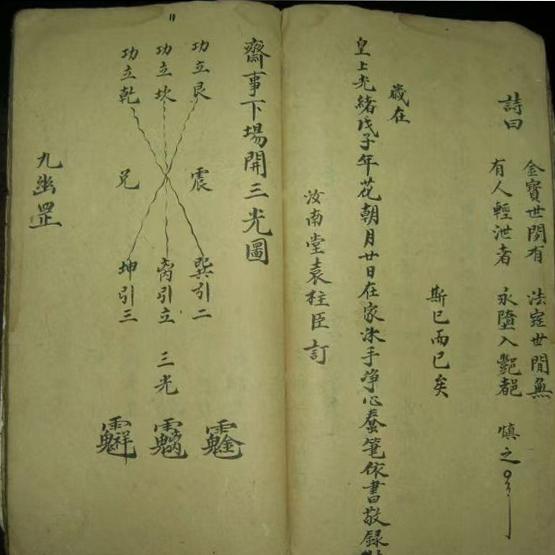 詩曰
金寶世間有 法寶世間無
有人輕泄者 永墮入酆都 慎之
斯已而已矣
歲在
皇上光緒戊子年花朝月廿日在家沐手淨心秦筆依書敬録
汝南堂袁柱臣訂
齋事下場開三光圖
功立艮 震 巽引二
功立坎 离引立 三光
功立乾 兑 坤引三
九幽罡